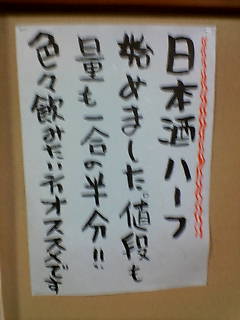 日本酒ハーフ
始めました。値段も
量も一合の半分!!
色々飲みたい方オススメです